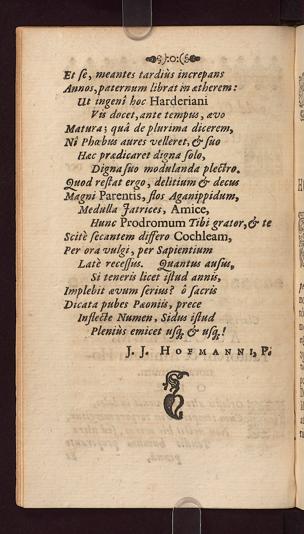 ):0:(
Et se, meantes tardiùs increpans
Annos, paternum librat in ætherem:
Ut ingenî hoc Harderiani
Vis docet, ante tempus, ævo
Matura; quâ de plurima dicerem,
Nî Phœbus aures velleret, & suo
Hæc prædicaret digna solo,
Digna suo modulanda plectro.
Quod restat ergo, delitium & decus
Magni Parentis, flos Aganippidum,
Medulla Jatrices, Amice,
Hunc Prodromum Tibi grator, & te
Scitè secantem differo Cochleam,
Per ora vulgi, per Sapientium
Latè recessus. Quantus ausus,
Si teneris licet istud annis,
Implebit ævum serius? ô sacris
Dicata pubes Pæoniis, prece
Inflecte Numen, Sidus istud
Pleniùs emicet usq; & usq;!
J. J. HOFMANNI, P.